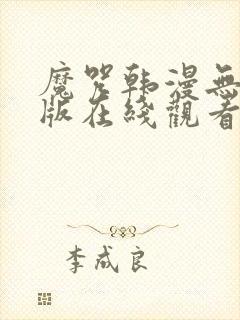 魔咒韩漫無
版在綫觀看
李成良